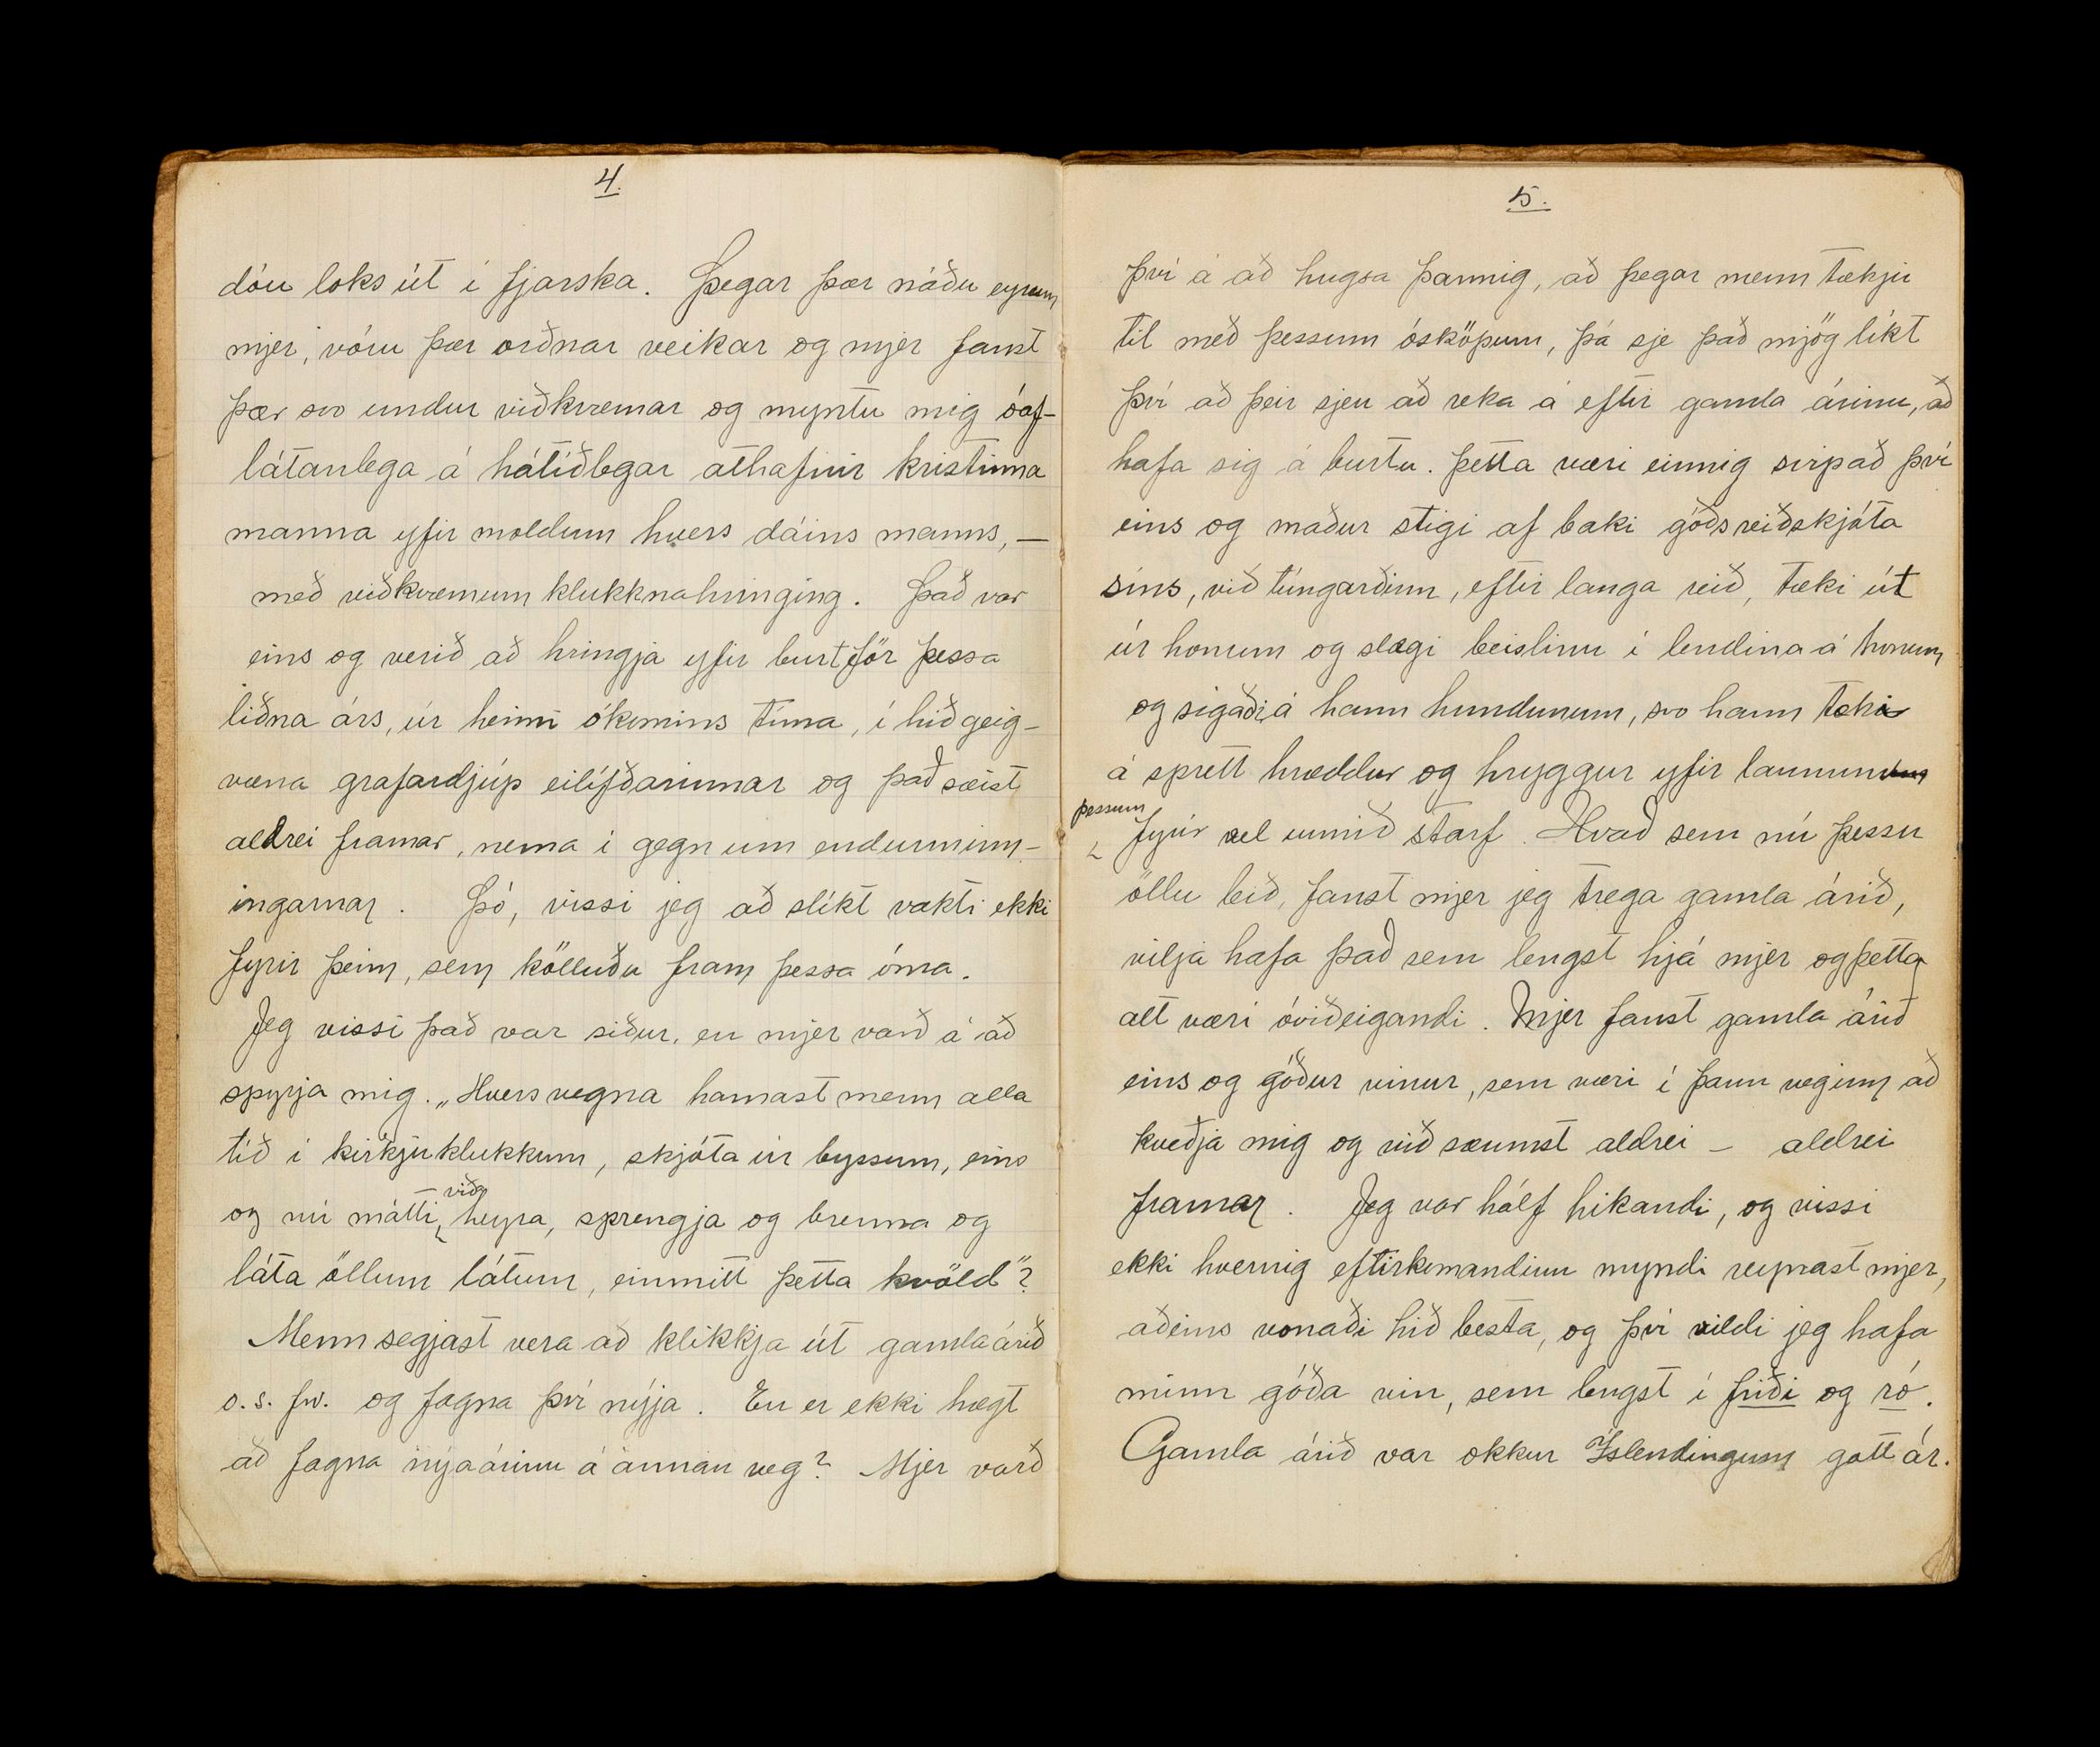 4.
dóu loks út í fjarska. Þegar þær náðu eyrum
mjer, vóru þær orðnar veikar og mjer fanst
þær svo undur viðkvæmar og myntu mig óaf-
látanlega á hátíðlegar athafnir kristinna
manna yfir moldum hvers dáins manns, —
með viðkvæmum klukknahringing. Það var
eins og verið að hringja yfir burtför þessa
liðna árs, úr heimi ókomins tíma, í hið geig-
væna grafardjúp eilífðarinnar og það sæist
aldrei framar, nema í gegnum endurminn-
ingarnar. Þó, vissi jeg að slíkt vakti ekki
fyrir þeim, sem kölluðu fram þessa óma.
Jeg vissi það var siður, en mjer varð á að
spyrja mig. „Hvers vegna hamast menn alla
tíð í kirkjuklukkum, skjóta úr byssum, eins
viða
og nú mátti heyra, sprengja og brenna og
láta öllum látum, einmitt þetta kvöld"?
Menn segjast vera að klikkja út gamlaárið
o.s.frv. og fagna því nýja. En er ekki hægt
að fagna nýaárinu á annan veg? Mjer varð
5.
því á að hugsa þannig, að þegar menn tækju
til með þessum ósköpum, þá sje það mjög líkt
því að þeir sjeu að reka á eftir gamla árinu, að
hafa sig á burtu. Þetta væri einnig svipað því
eins og maður stigi af baki góðs reiðskjóta
síns, við túngarðinn, eftir langa reið, tæki út
úr honum og slægi beislinu í lendina á honum
og sigaði á hann hundunum, svo hann tæki
á sprett hræddur og hryggur yfir laununum
þessum
fyrir vel unnið starf. Hvað sem nú þessu
öllu leið, fanst mjer jeg trega gamla árið,
vilja hafa það sem lengst hjá mjer og þetta
alt væri óviðeigandi. Mjer fanst gamla árið
eins og góður vinur, sem væri í þann veginn að
kveðja mig og við sæumst aldrei — aldrei
framar. Jeg var hálf hikandi, og vissi
ekki hvernig eftirkomandinn myndi reynast mjer,
aðeins vonaði hið besta, og því vildi jeg hafa
minn góða vin, sem lengst í friði og ró.
Gamla árið var okkur Íslendingum gott ár.